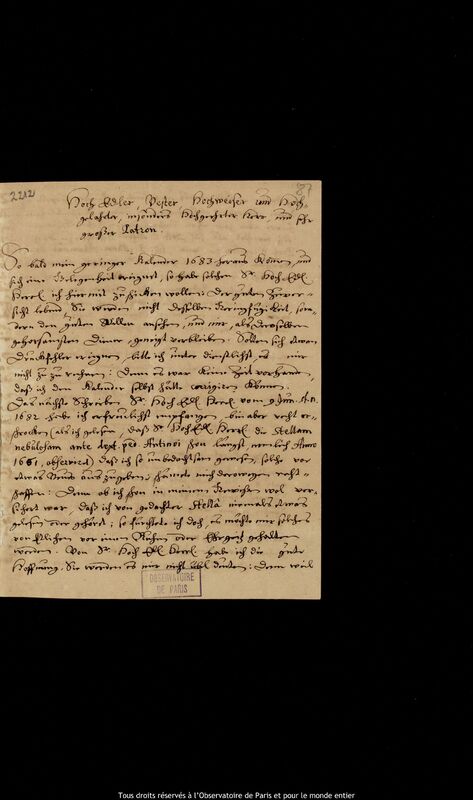 2212
87
Hoch Edler, Vester, Hochweiser und Hoch-
gelahrter, insonders Hochgeehrter Herr, und sehr
großer Patron
So bald mein geringer Kalender 1683 heraus kommen, und
sich eine Gelegenheit ereignet, so habe solchen Sr. Hoch Edl.
Herrl. ich hiermit zuschicken wollen: der guten Zuver-
sicht lebend, Sie werden nicht desselben Geringfügigkeit, son-
dern den guten Willen ansehen, und mir, als Deroselben
gehorsamsten Diener, geneigt verbleiben. Solten sich etwan
Druckfehler ereignen, bitte ich unter dienstlichst, es mir
nicht zu zu rechnen: Denn es war keine Zeit vorhanden,
daß ich den Kalender selbst hätte corrigiren können.
Das nächste Schreiben Sr. Hoch Edl. Herrl. vom 9 Jun. A.
1682 habe ich erfreulichst empfangen, bin aber recht er-
schrocken, (als ich gelesen, daß Sr. Hoch Edl. Herrl. die Stellam
nebulosam ante dext. ped. Antinoi schon längst, nemlich Anno
1661, observiret) daß ich so unbedachtsam gewesen, solche vor
etwas Neues auszugeben; schämete mich derowegen recht-
schaffen: Denn ob ich schon in meinem Gewissen wol ver-
sichert war, daß ich von gedachter Stella niemals etwas
gelesen oder gehöret; so fürchtete ich doch, es möchte mir solches
von etlichen vor einen Ruhm oder Ehrgeitz gehalten
werden. Von Sr. Hoch Edl. Herrl. hab ich die gute
Hoffnung, Sie werden es mir nicht übel deuten: Denn weil
OBSERVATOIRE
DE PARIS
Tous droits réservés à l'Observatoire de Paris et pour le monde entier